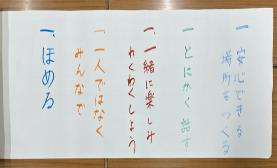 一 安心できる
場所をつくる
一 とにかく話す
一、一緒に楽しみ
わくわくしよう
一、一人ではなく
みんなで
一、ほめる